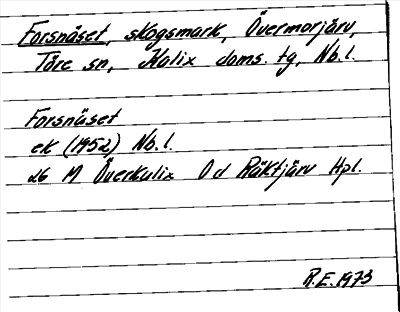 Forsnäset, skogsmark, Övermorjärv,
Töre sn, Kalix doms. tg, Nb.l.
Forsnäset
ek (1952) Nb.l.
26 M Överkalix 0 d Räktjärv Hpl.
R.E. 1973